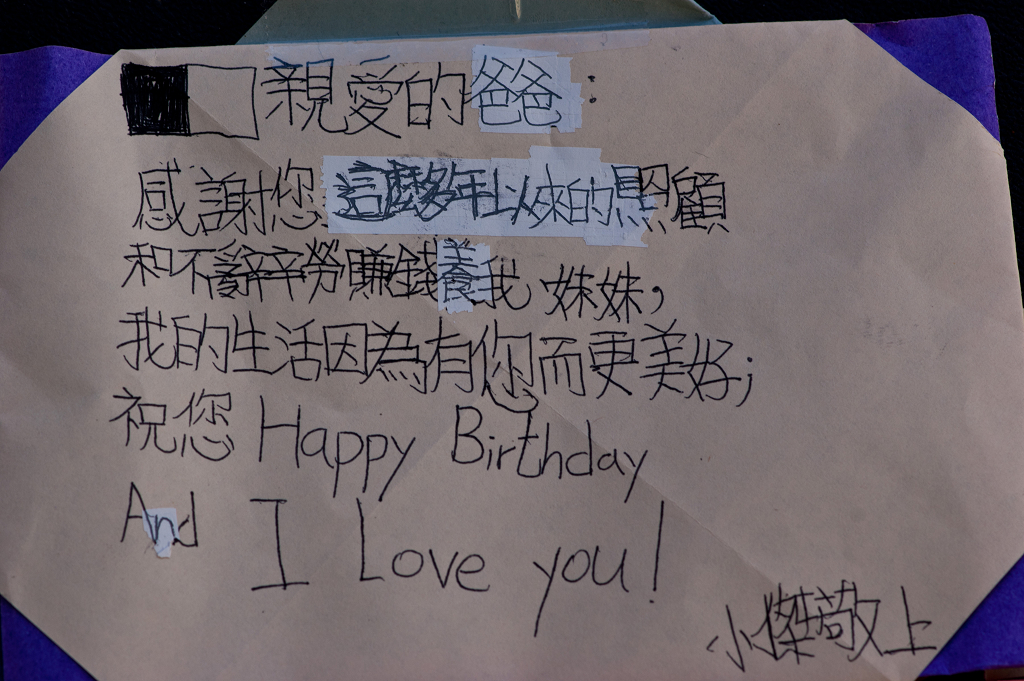 親愛的爸爸：
感謝您這麼多年以來的照顧
和不辭辛勞賺錢養我，妹妹，
我的生活因為有你而更美好；
祝您 Happy Birthday
And I Love you!
小傑敬上